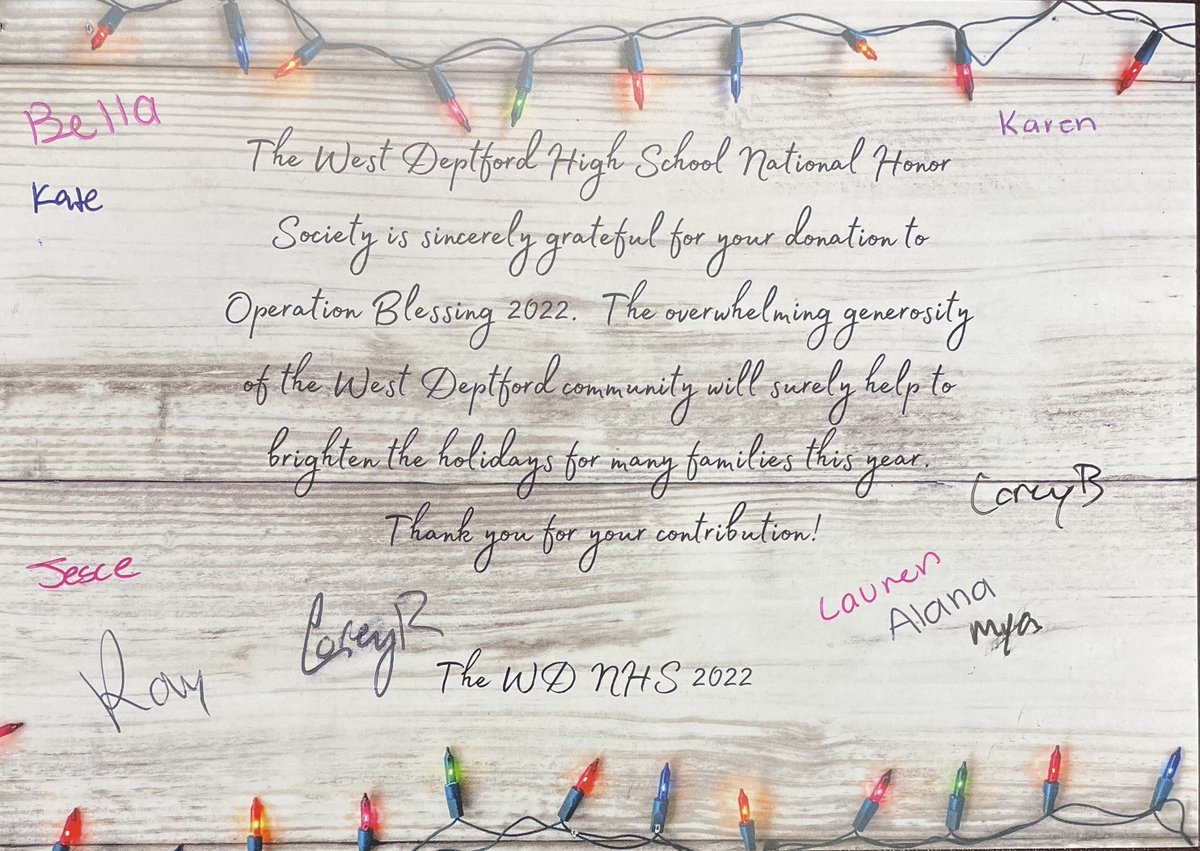 Bella
Karen
The West Deptford High School National Honor
Kate
Society is sincerely grateful for your donation to
Operation Blessing 2022. The overwhelming generosity
of the West Deptford community will surely help to
brighten the holidays for many families this year.
Corey B
Thank you for your contribution!
Jesce
Lauren
Alana
Mya
Corey R
The WD NHS 2022
Ray